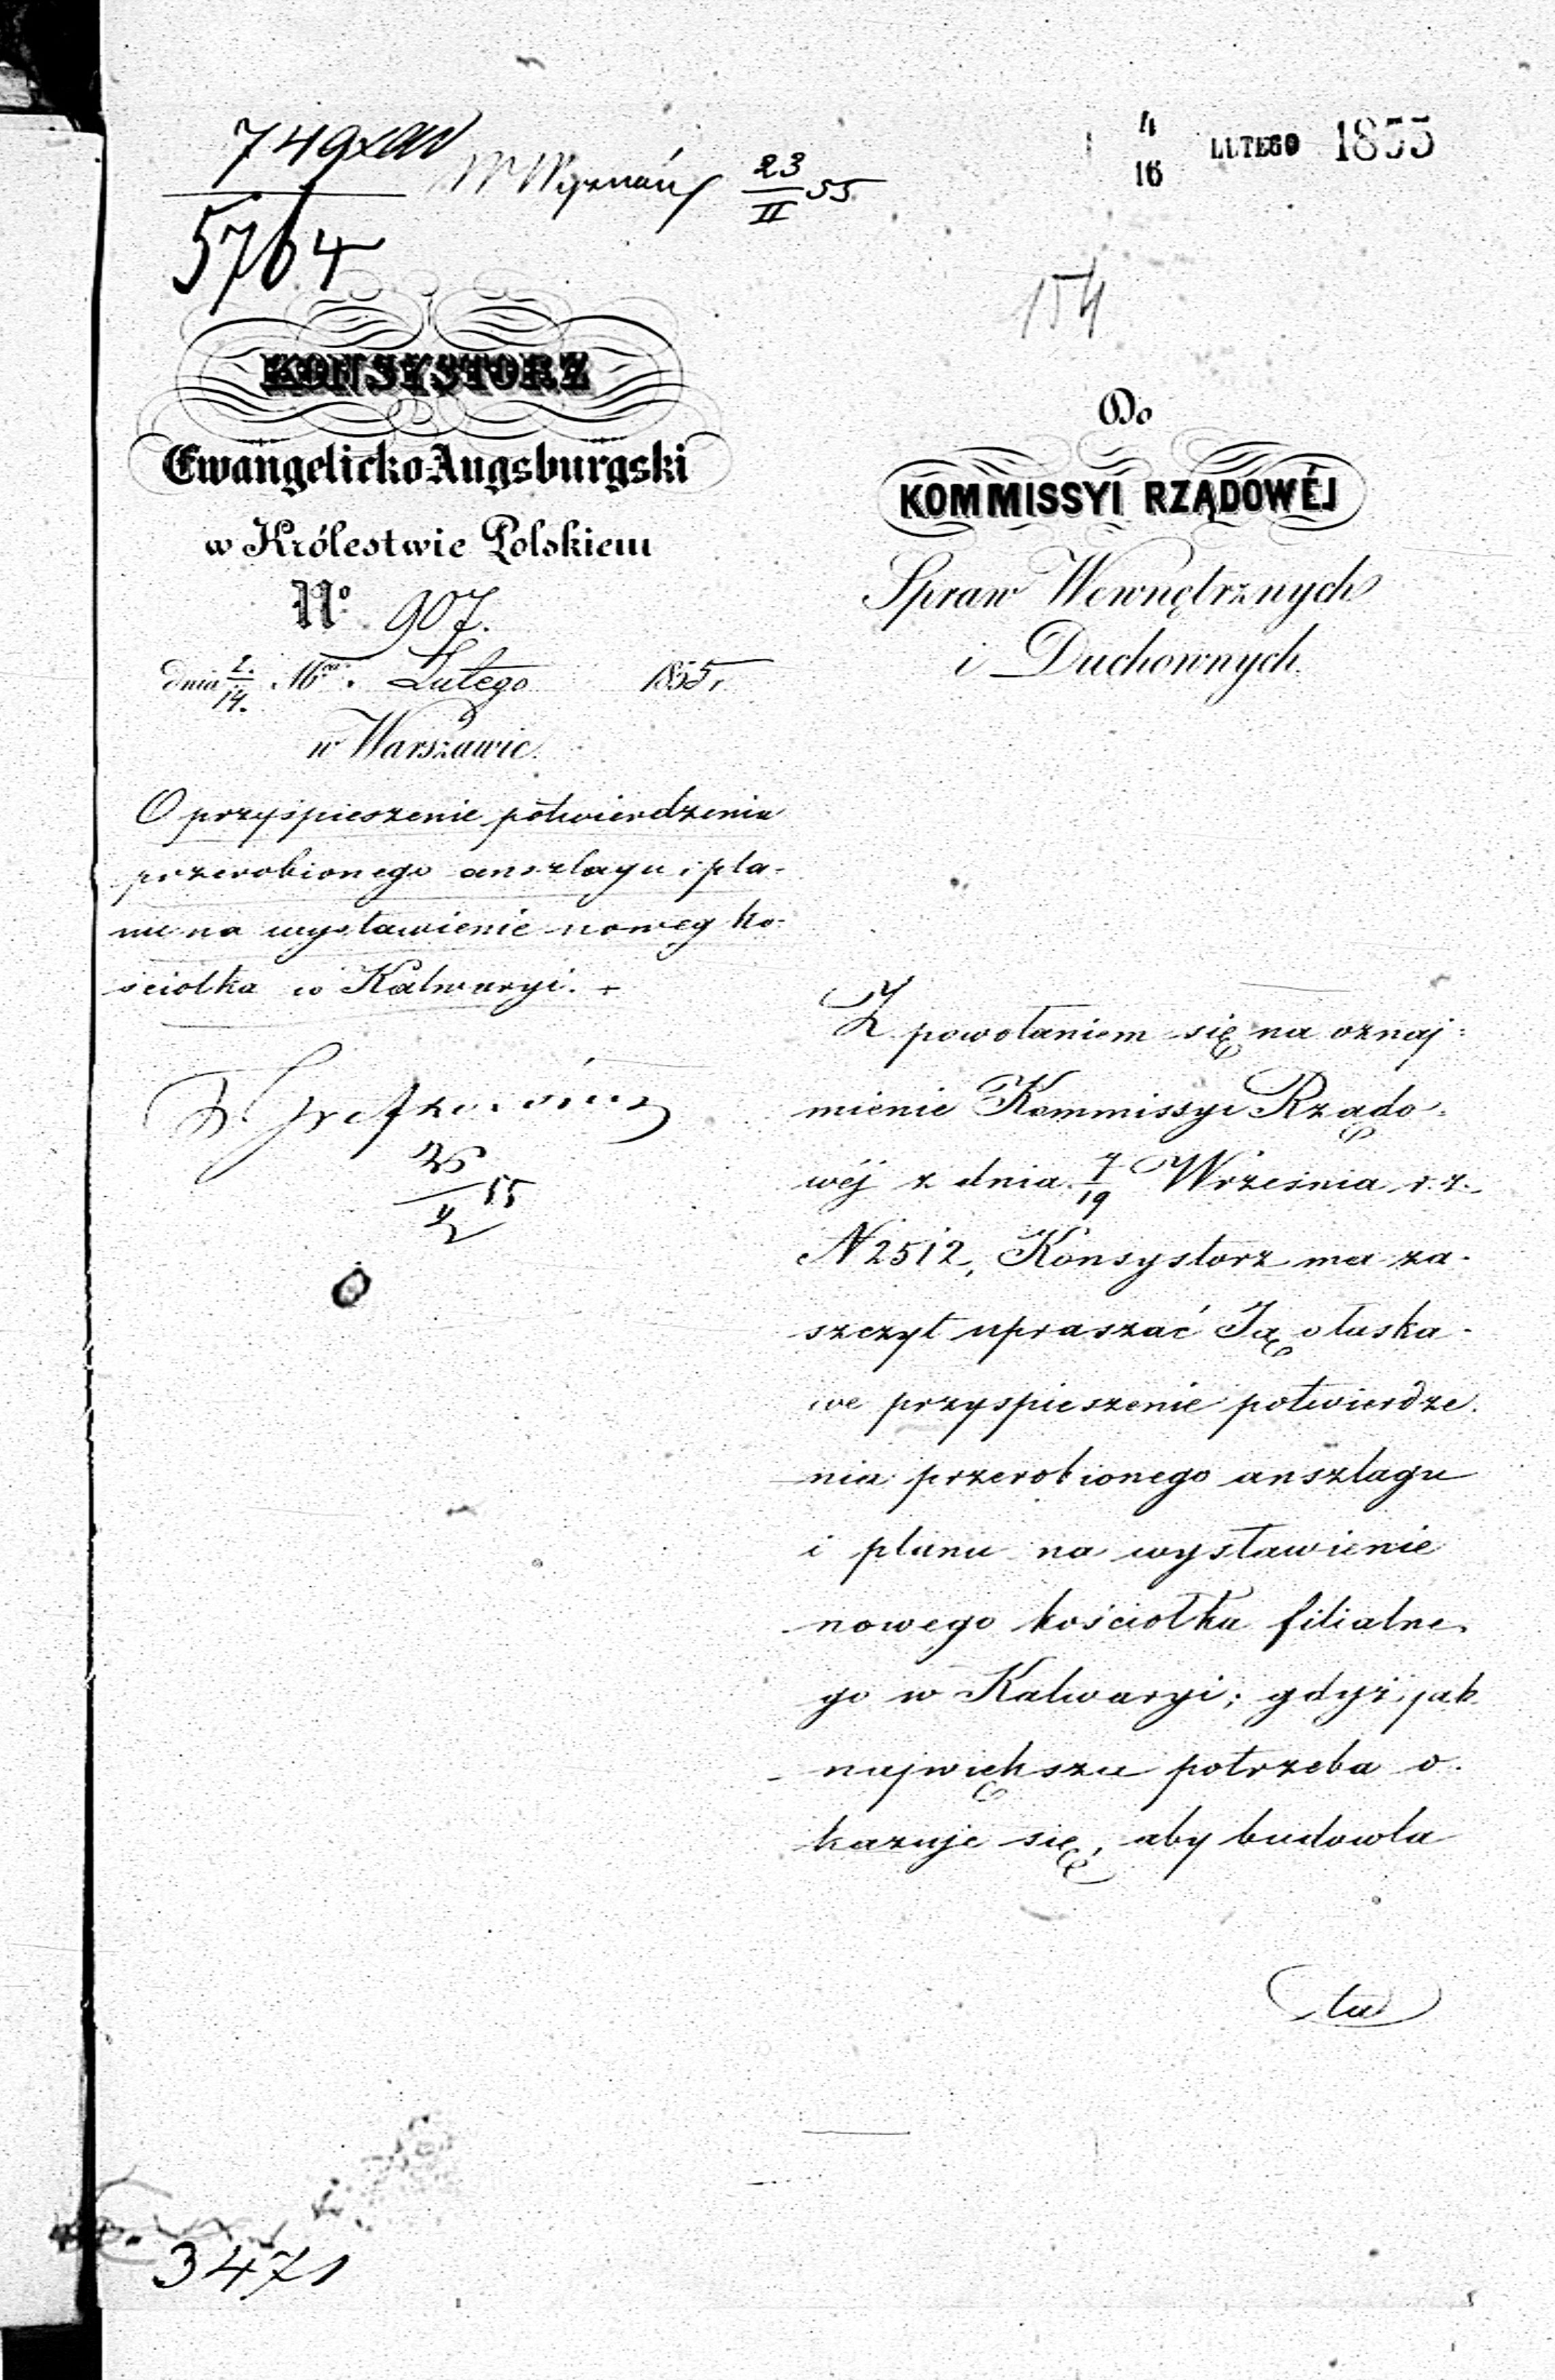 749
5764
W Wyznań 23/II 55
4/16 LUTEGO 1855
154
KONSYSTORZ
Ewangelicko-Augsburgski
w Królestwie Polskiem
No 907.
dnia 2/14. Mca. Lutego 1855 r.
w Warszawie.
O przyśpieszenie potwierdzenia
przerobionego anszlagu i pla-
nu na wystawienie noweg ko-
ściołka w Kalwaryi. +
26/2 55
Do
KOMMISSYI RZĄDOWÉJ
Spraw Wewnętrznych
i Duchownych.
Z powołaniem się na oznaj-
mienie Kommissyi Rządo-
wéj z dnia 7/19 Września r. z.
N 2512, Konsystorz ma za-
szczyt upraszać Ją o łaska-
we przyspieszenie potwierdze-
nia przerobionego anszlagu
i planu na wystawienie
nowego kościołka filialne-
go w Kalwaryi; gdyż jak
największa potrzeba o-
kazuje się, aby budowla
ta
3471